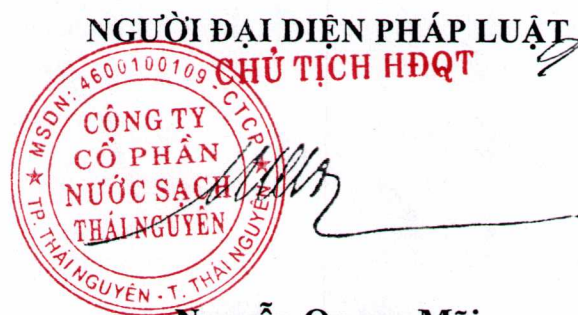 NGƯỜI ĐẠI DIỆN PHÁP LUẬT
CHỦ TỊCH HĐQT
MSDN: 4600100109 - CTCP
CÔNG TY
CỔ PHẦN
NƯỚC SẠCH
THÁI NGUYÊN
TP. THÁI NGUYÊN - T. THÁI NGUYÊN